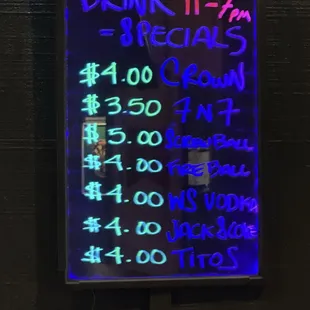 DRINK 11-7pm
-SPECIALS
$4.00 CROWN
$3.50 7N7
$5.00 SCREWBALL
$4.00 FIREBALL
$4.00 WS VODKA
$4.00 JACK&COKE
$4.00 TITOS